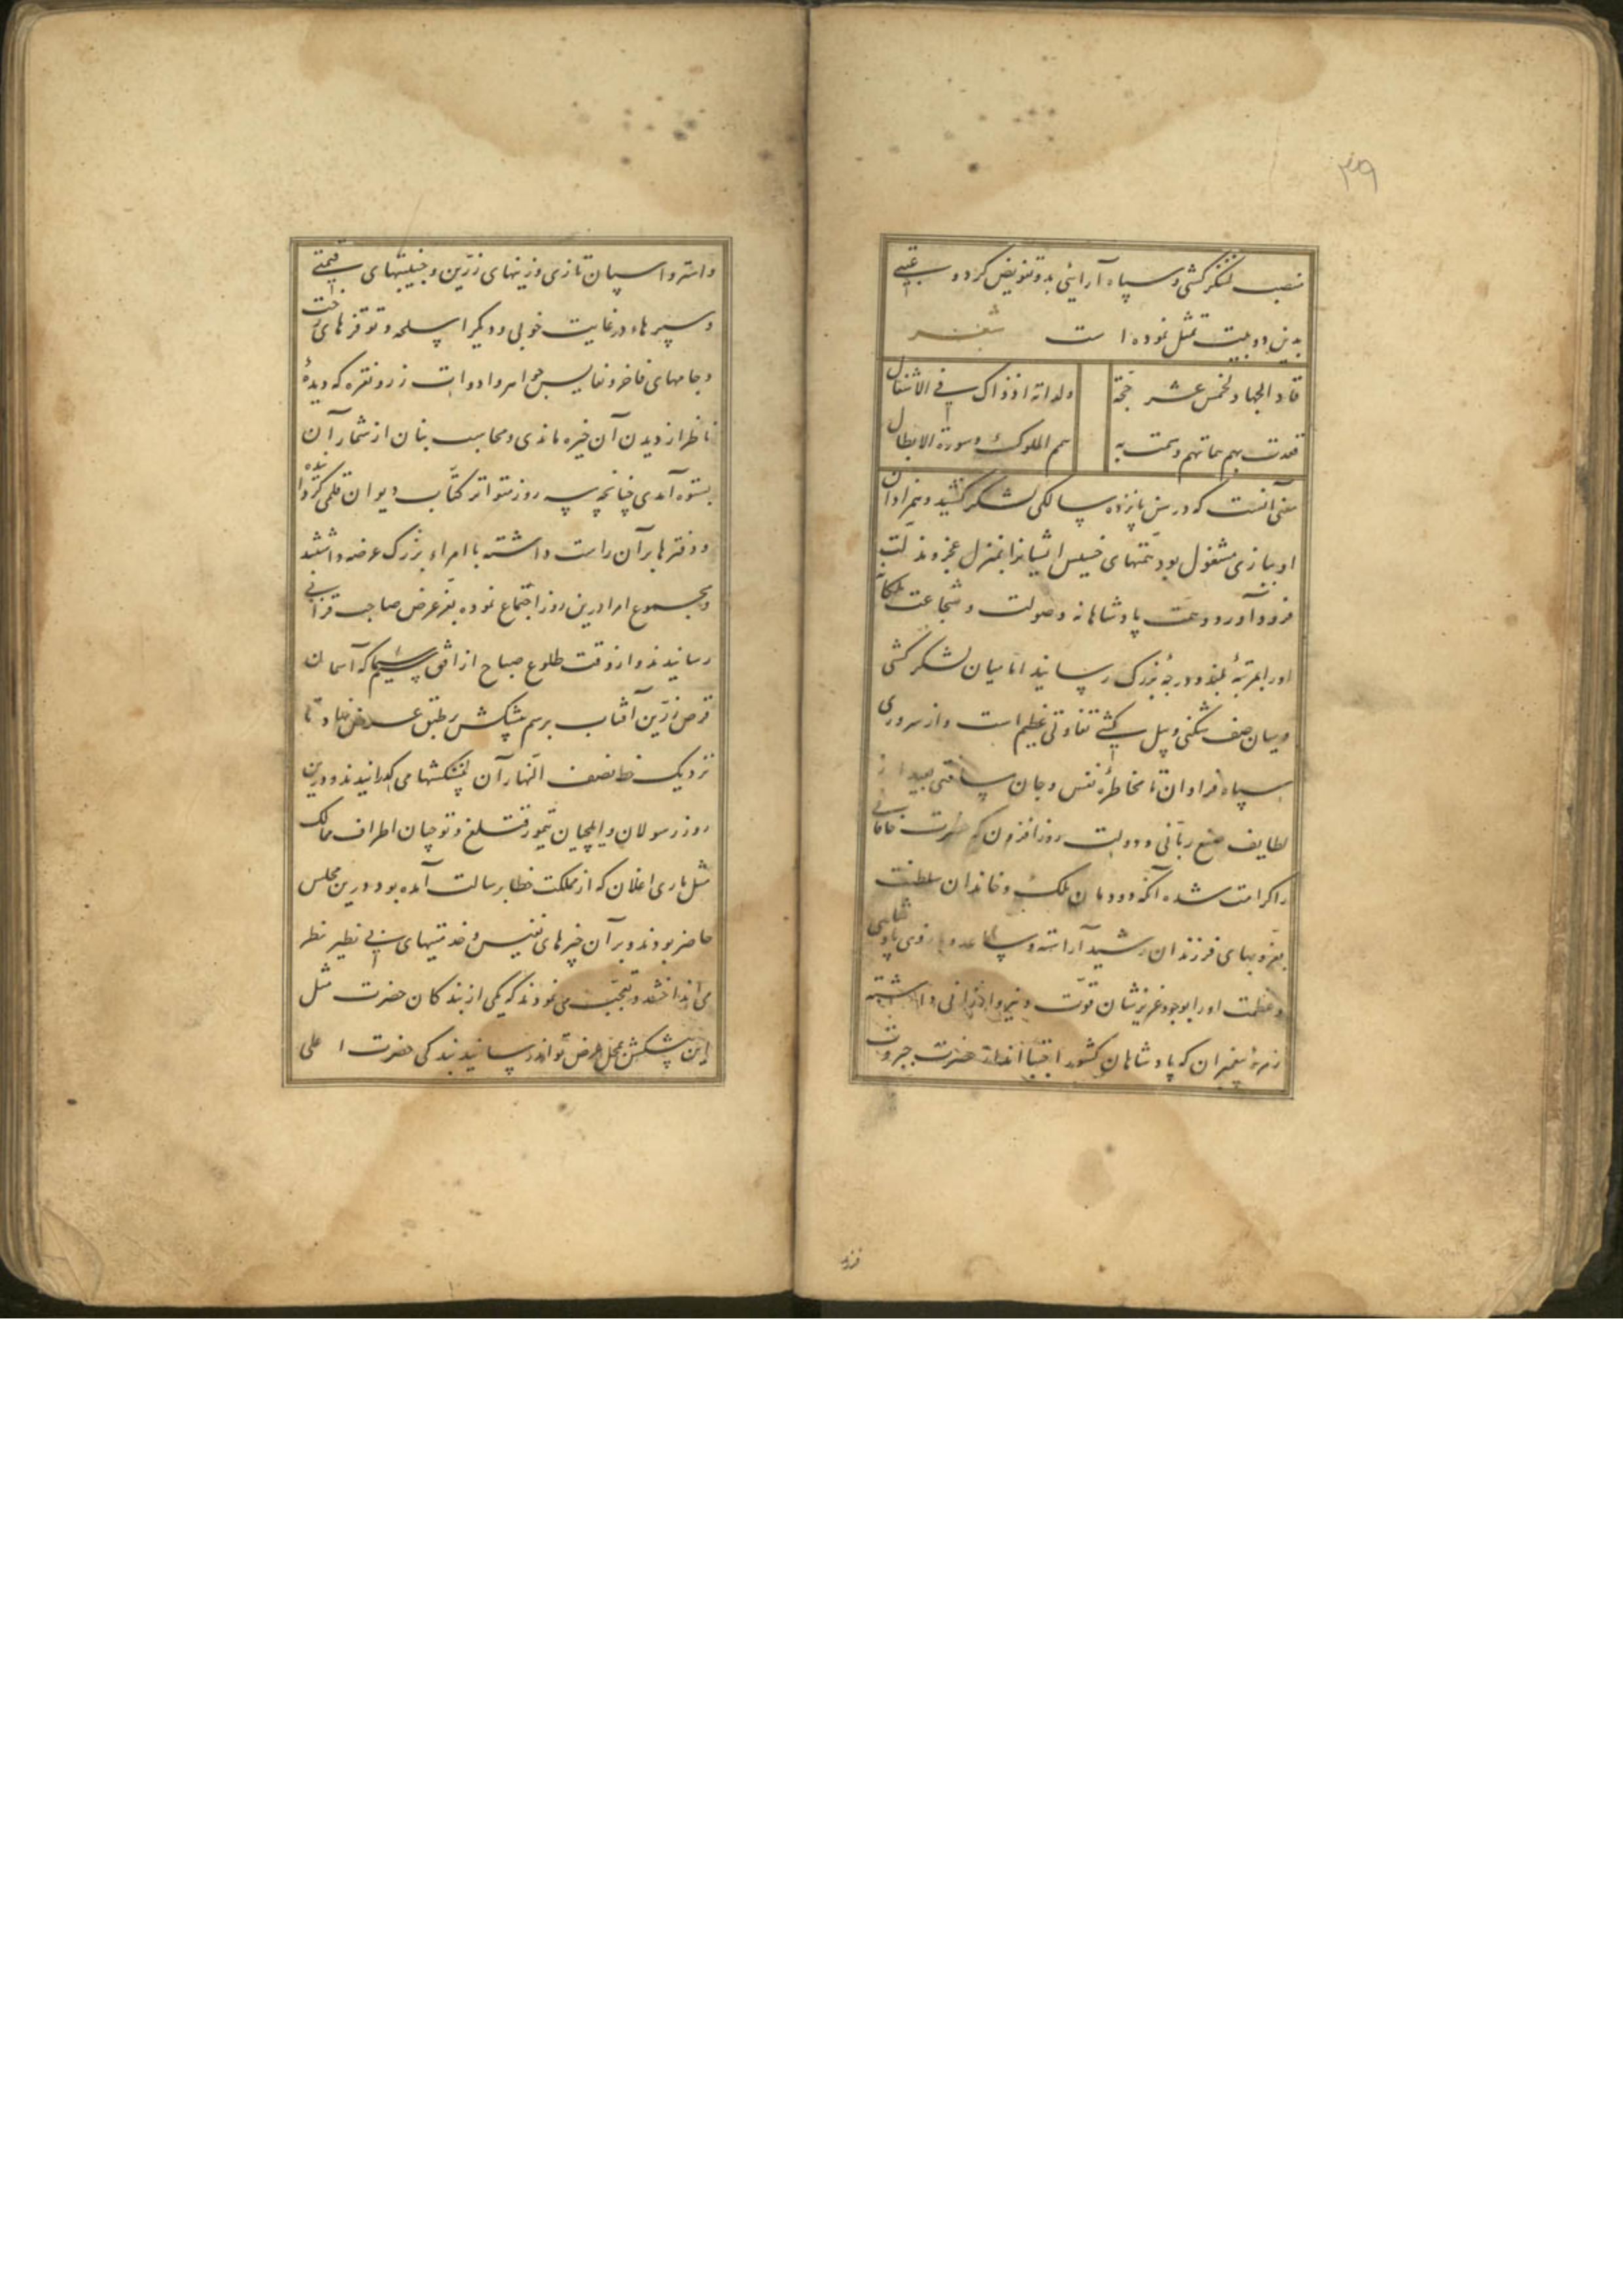 ۳۹
منصب لشکر کشی و سپاه آرائی بدو تفویض کرد و عتبی
بدین دو بیت تمثل نموده است شعر
قاد الجیاد لخمس عشر حجة
ولداته اذ ذاک فی الاشغال
قعدت بهم هماتهم وسمت به
همم الملوک وسورة الابطال
معنی آنست که در سن پانزده سالگی لشکر کشید و همزادان
او ببازی مشغول بود همتهای خسیس ایشانرا بمنزل عجز و مذلت
فرود آورد و همت پادشاهانه و صولت و شجاعت ملکانه
اورا بمرتبهٔ بلند و درجهٔ بزرگ رسانید اما میان لشکر کشی
و میان صف شکنی و پیل کشی تفاوتی عظیم است و از سروری
سپاه فراوان تا مخاطرهٔ نفس و جان مسافتی بعید از
لطایف صنع ربانی و دولت روز افزون که حضرت خاقانی
را کرامت شده آنکه دودمان ملک و خاندان سلطنت
بفر و بهای فرزندان رشید آراسته و ساعد و بازوی پادشاهی
و عظمت اورا بوجود عزیزشان قوت و نیرو ارزانی داشته
زمرهٔ پیغمبران که پادشاهان کشور اجتبااند از حضرت جبروت
فرزند
و استر و اسپان تازی و زینهای زرین و جنیبتهای قیمتی
و سپرهاء در غایت خوبی و دیگر اسلحه و توقزهای رخت
و جامهای فاخر و نفایس جواهر و ادوات زر و نقره که دیدهٔ
ناظر از دیدن آن خیره ماندی و محاسب بنان از شمار آن
بستوه آمدی چنانچه سه روز متواتر کتّاب دیوان قلمی کردانیده
و دفترها بر آن راست داشته با امراء بزرگ عرضه داشتند
و مجموع امرا درین روز اجتماع نموده بعز عرض صاحب قرانی
رسانیدند و از وقت طلوع صباح از افق سیم که آسمان
قرص زرین آفتاب برسم پیشکش بر طبق عرض نهاد تا
نزدیک خط نصف النهار آن پیشکشها می گذرانیدند و درین
روز رسولان و ایلچیان تیمور قتلغ و نوچیان اطراف ممالک
مثل باری اغلان که از مملکت خطا برسالت آمده بود درین مجلس
حاضر بودند و بر آن چیزهای نفیس و خدمتیهای بی نظیر نظر
می انداختند و تعجب می نمودند که یکی از بندکان حضرت مثل
این پیشکش بمحل عرض تواند رسانید بندکی حضرت اعلی